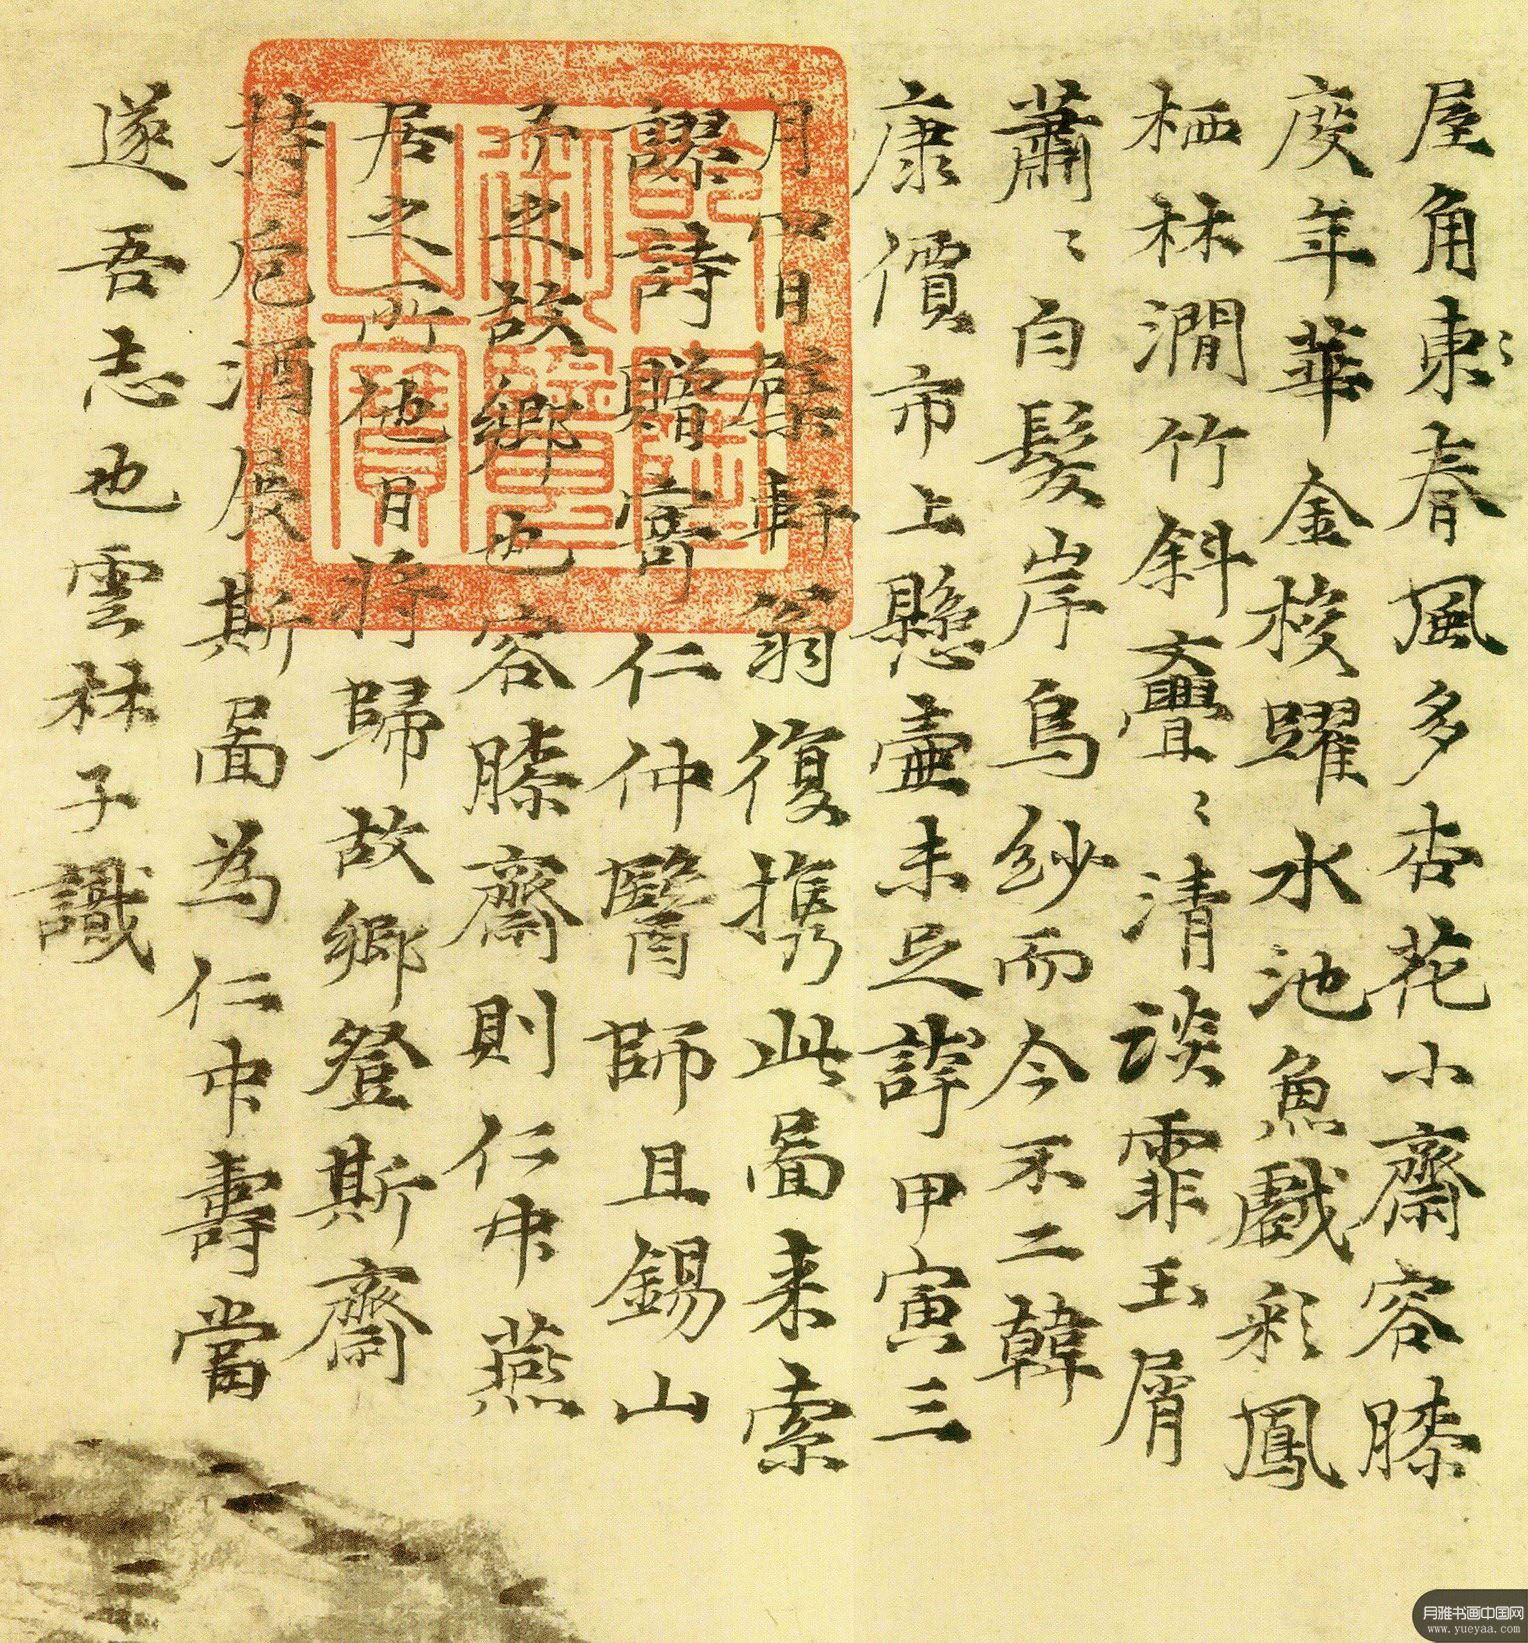 屋角東〻春風多杏花小齋容膝
度年華金梭躍水池魚戲彩鳳
栖林澗竹斜亹〻清談霏玉屑
蕭〻白髮岸烏紗而今不二韓
康價市上懸壺未足誇甲寅三
月四日檗軒翁復携此圖来索
謬詩贈寄仁仲醫師且錫山
予之故鄉也容膝齋則仁中燕
居之所他日將歸故鄉登斯齋
持卮酒展斯圖為仁中壽當
遂吾志也雲林子識
乾隆
御覽
之寶
月雅书画中国网
www.yueyaa.com